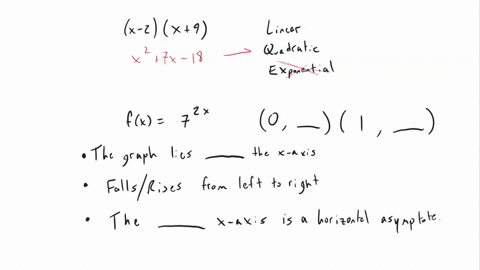 (x-2) (x+9)
Linear
x² + 7x - 18 → Quadratic
Exponential
f(x) = 7^{2x} (0, __) (1, __)
• The graph lies ____ the x-axis
• Falls/Rises from left to right
• The ____ x-axis is a horizontal asymptote.